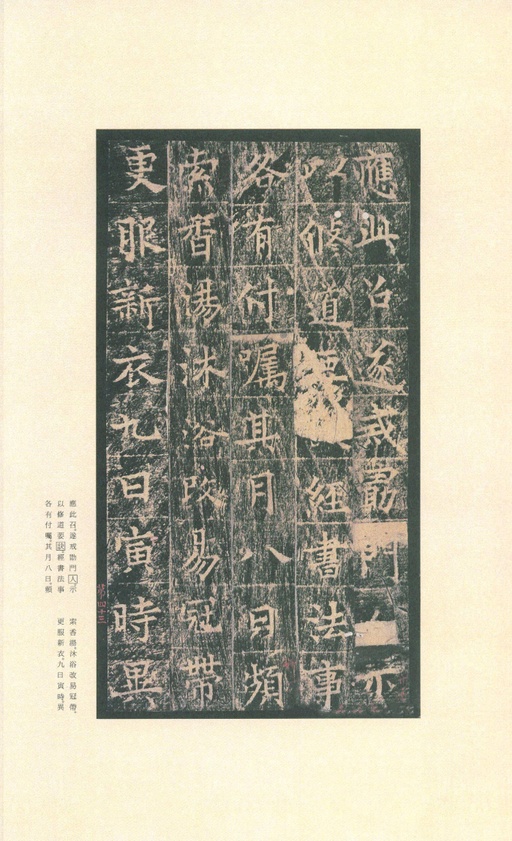 應此召遂戒勖門人示
以修道要 經書法事
各有付囑其月八日頻
索香湯沐浴改易冠帶
更服新衣九日寅時異
第四三
應此召,遂戒勖門人示
以修道要訣經書法事
各有付囑,其月八日,頻
索香湯,沐浴改易冠帶,
更服新衣,九日寅時,異